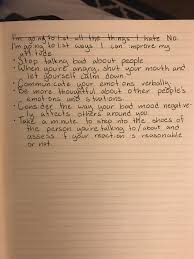 I'm going to list all the things I hate No.
I'm going to list ways I can improve my
attitude
• Stop talking bad about people
• When you're angry, shut your mouth and
let yourself calm down
• Communicate your emotions verbally
• Be more thoughtful about other people's
emotions and situations
• Consider the way your bad mood negative-
ly affects others around you.
• Take a minute to step into the shoes of
the person you're talking to/about and
assess if your reaction is reasonable
or not.